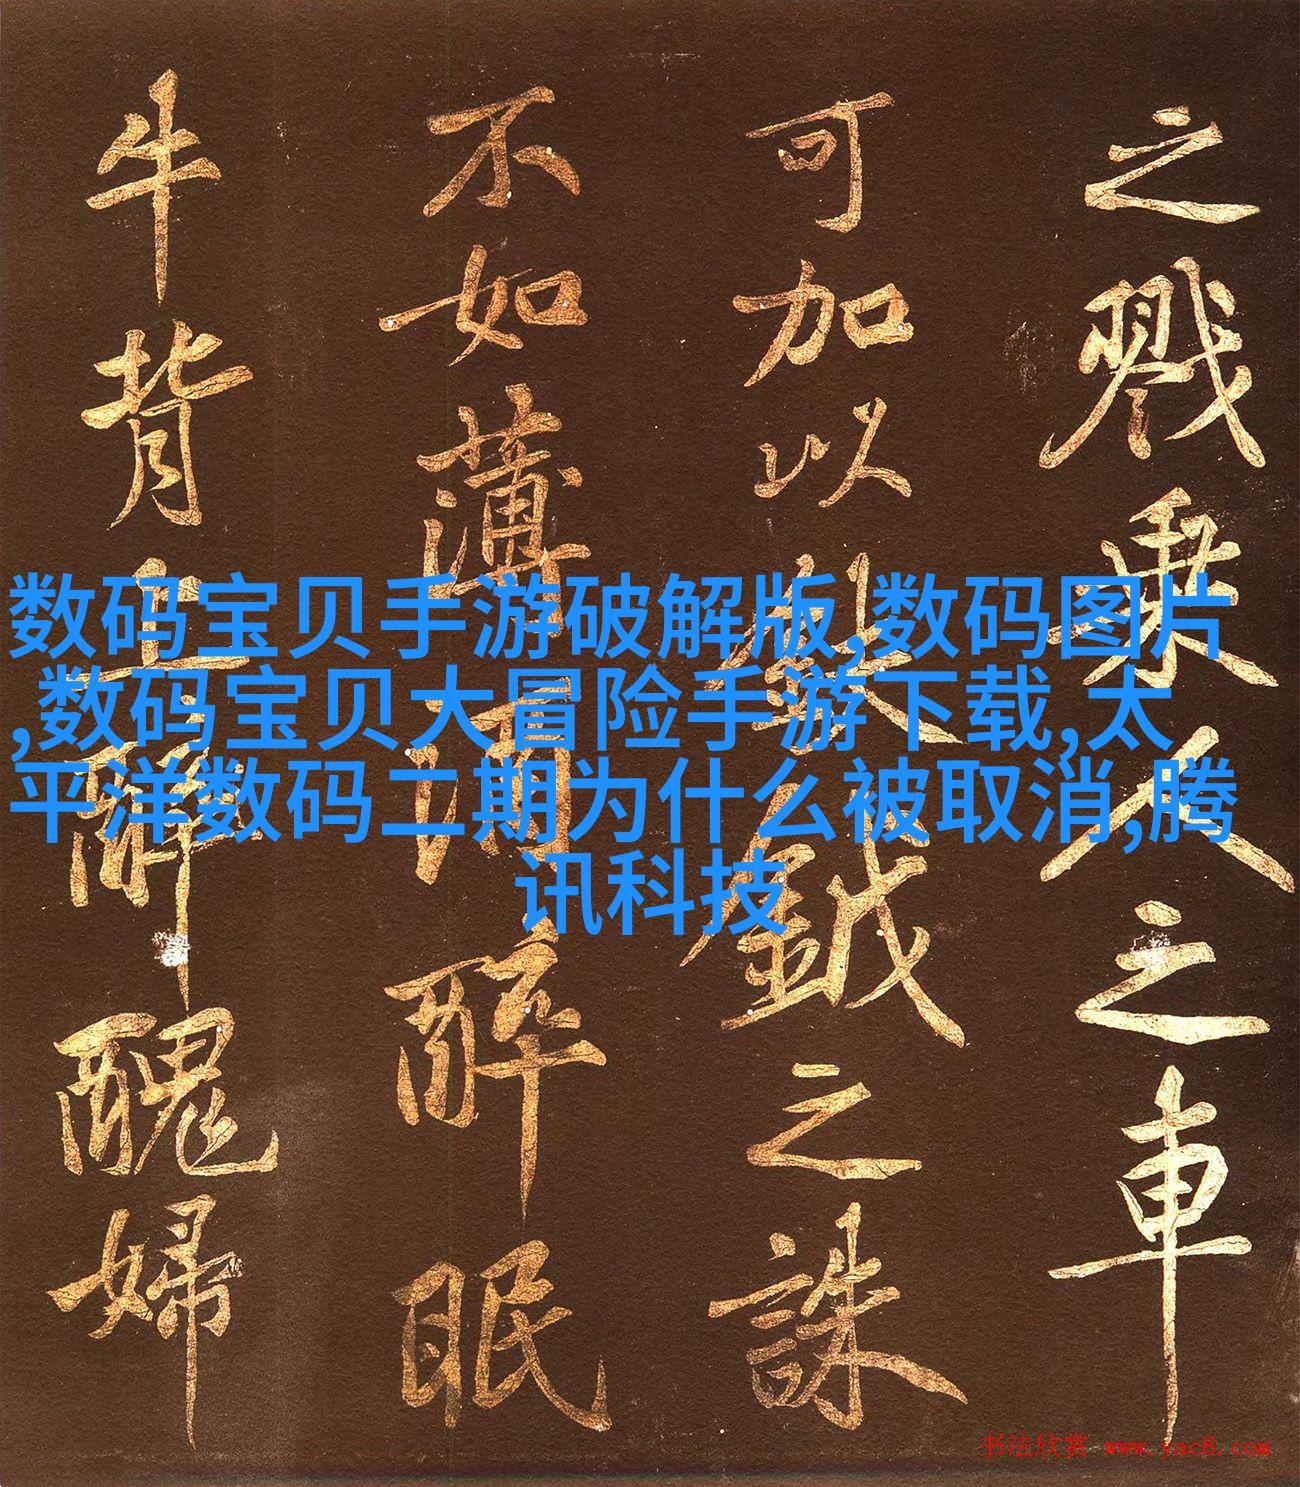 之戮乘人之車
可加以鉞之誅
不如薄酒醉眠
牛背上醉醜婦
数码宝贝手游破解版,数码图片
,数码宝贝大冒险手游下载,太
平洋数码二期为什么被取消,腾
讯科技
书法欣赏 www.yac8.com